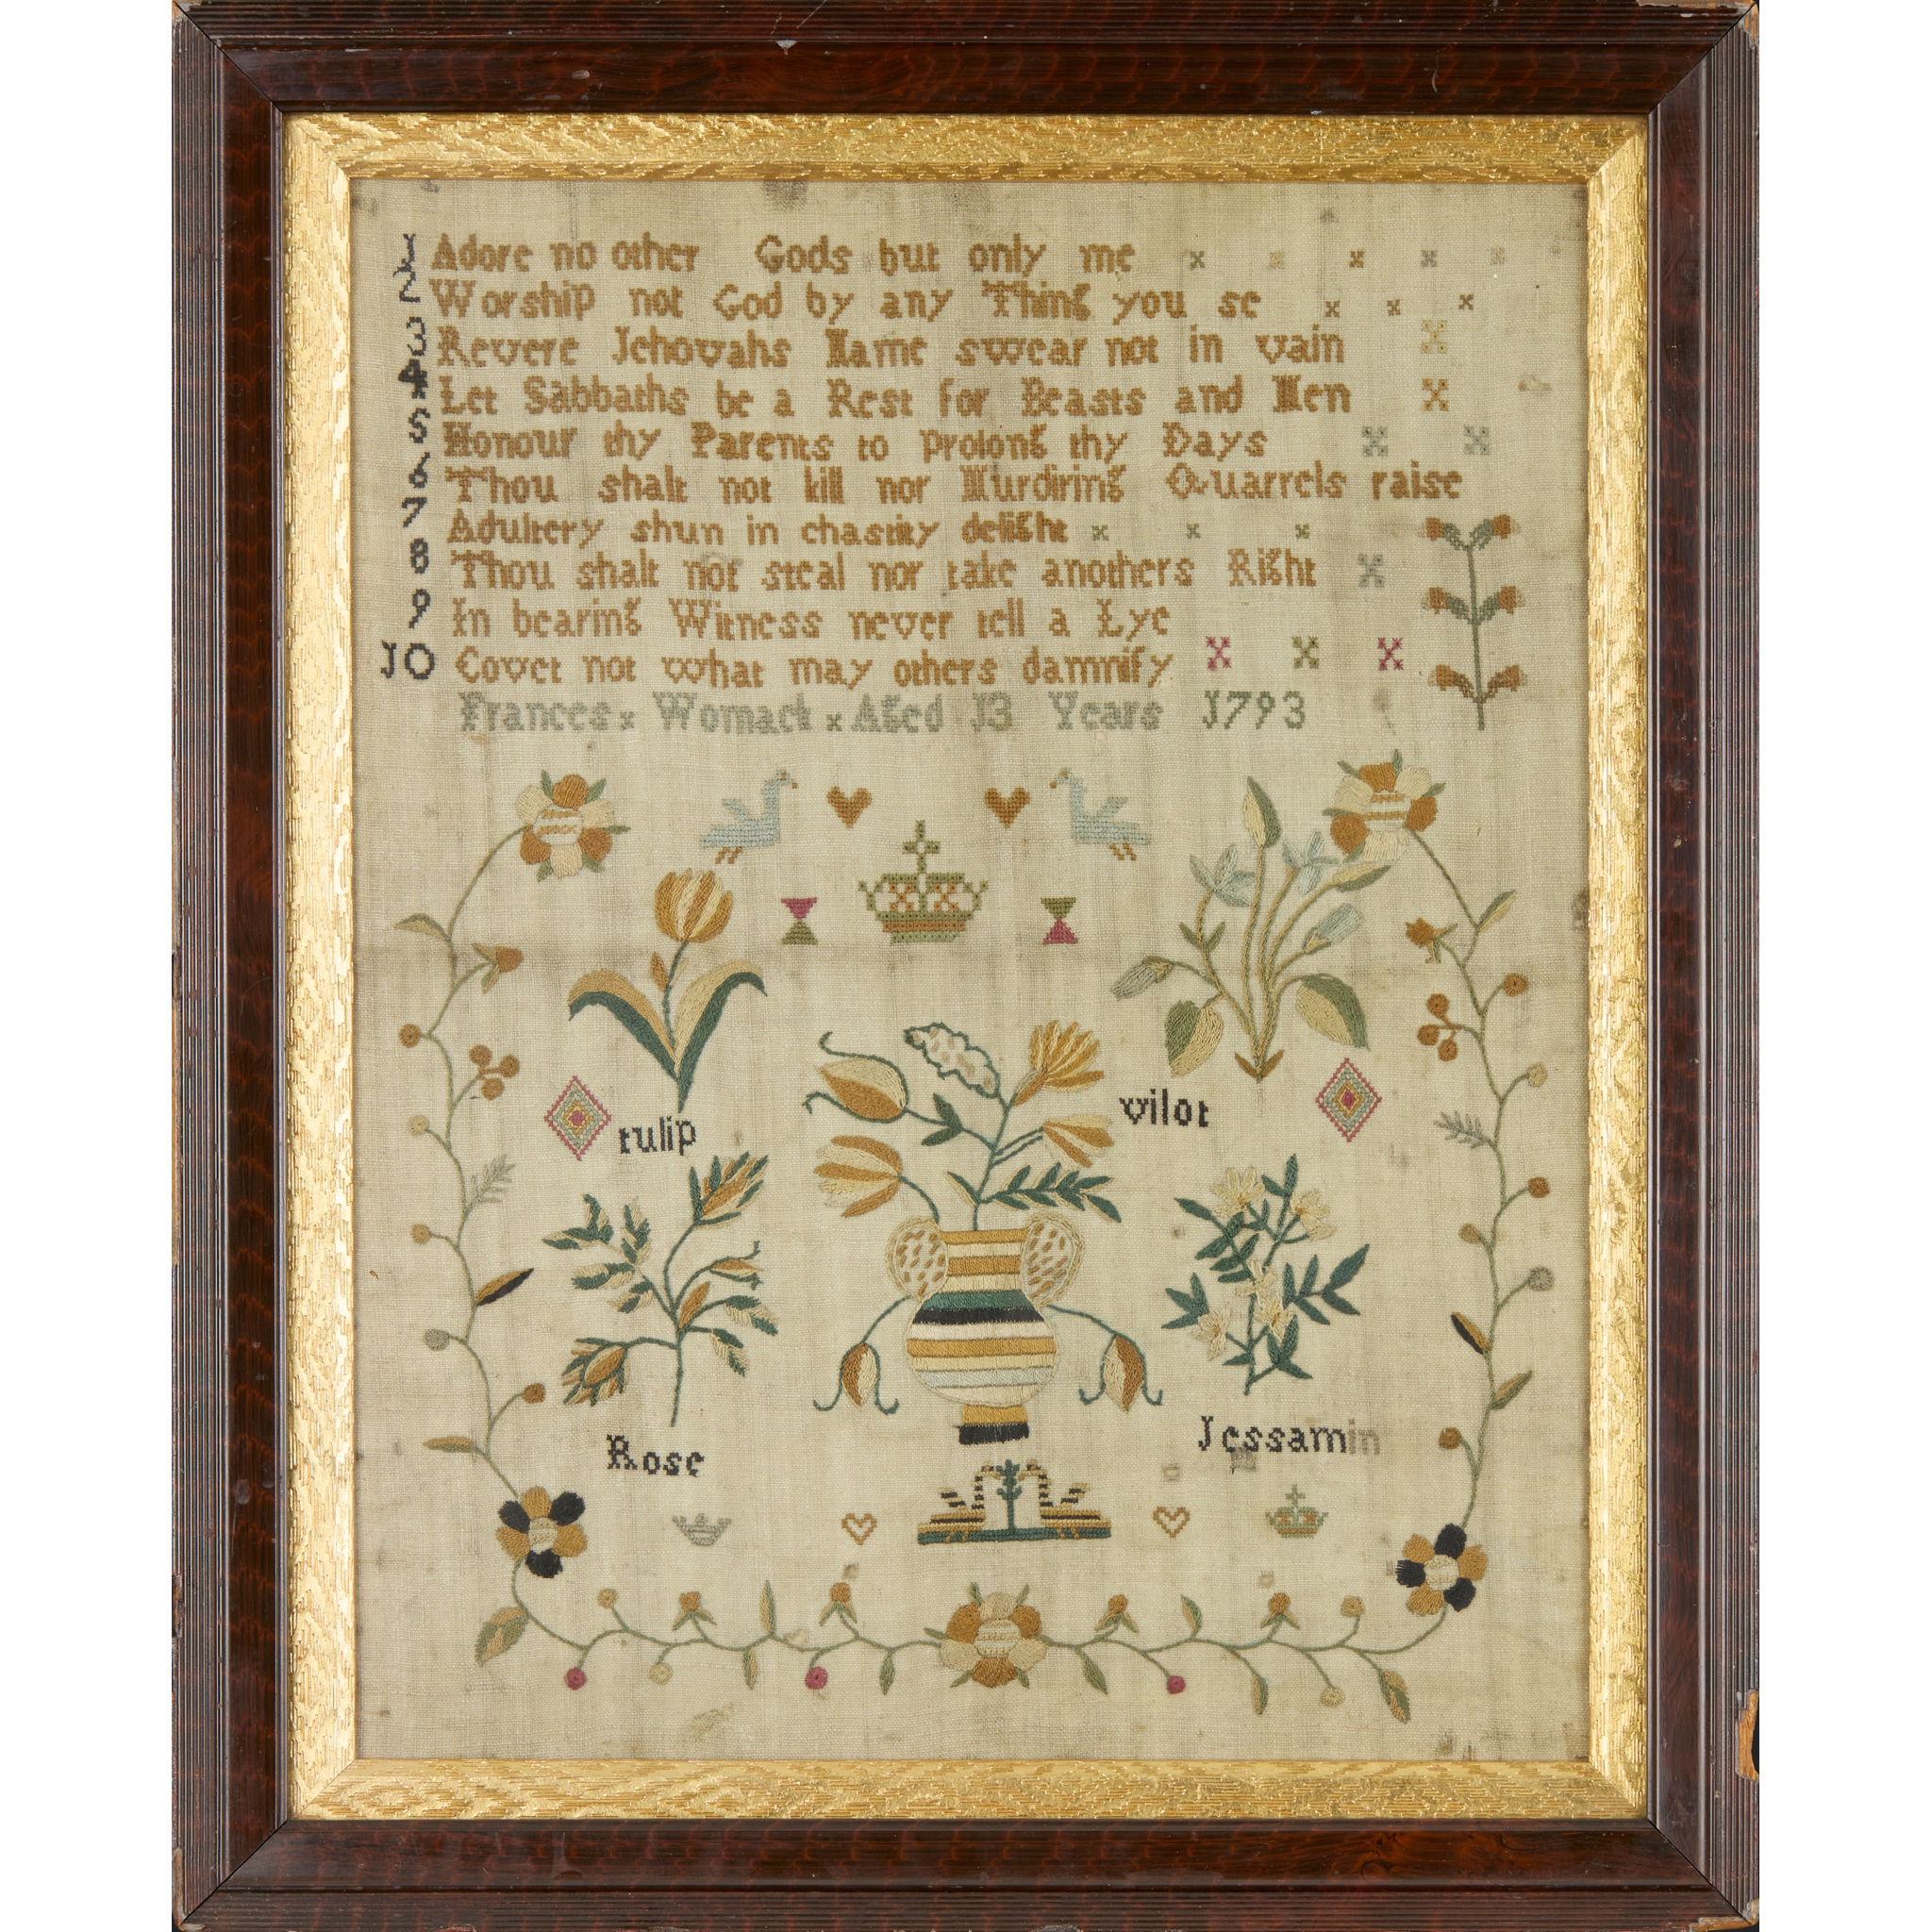 1 Adore no other Gods but only me
2 Worship not God by any Thing you se
3 Revere Jehovahs Name swear not in vain
4 Let Sabbaths be a Rest for Beasts and Men
5 Honour thy Parents to prolong thy Days
6 Thou shalt not kill nor Murdiring Quarrels raise
7 Adultery shun in chastity delight
8 Thou shalt not steal nor take anothers Right
9 In bearing Witness never tell a Lye
10 Covet not what may others damnify
Frances x Womack x Aged 13 Years 1793
tulip
vilot
Rose
Jessamin